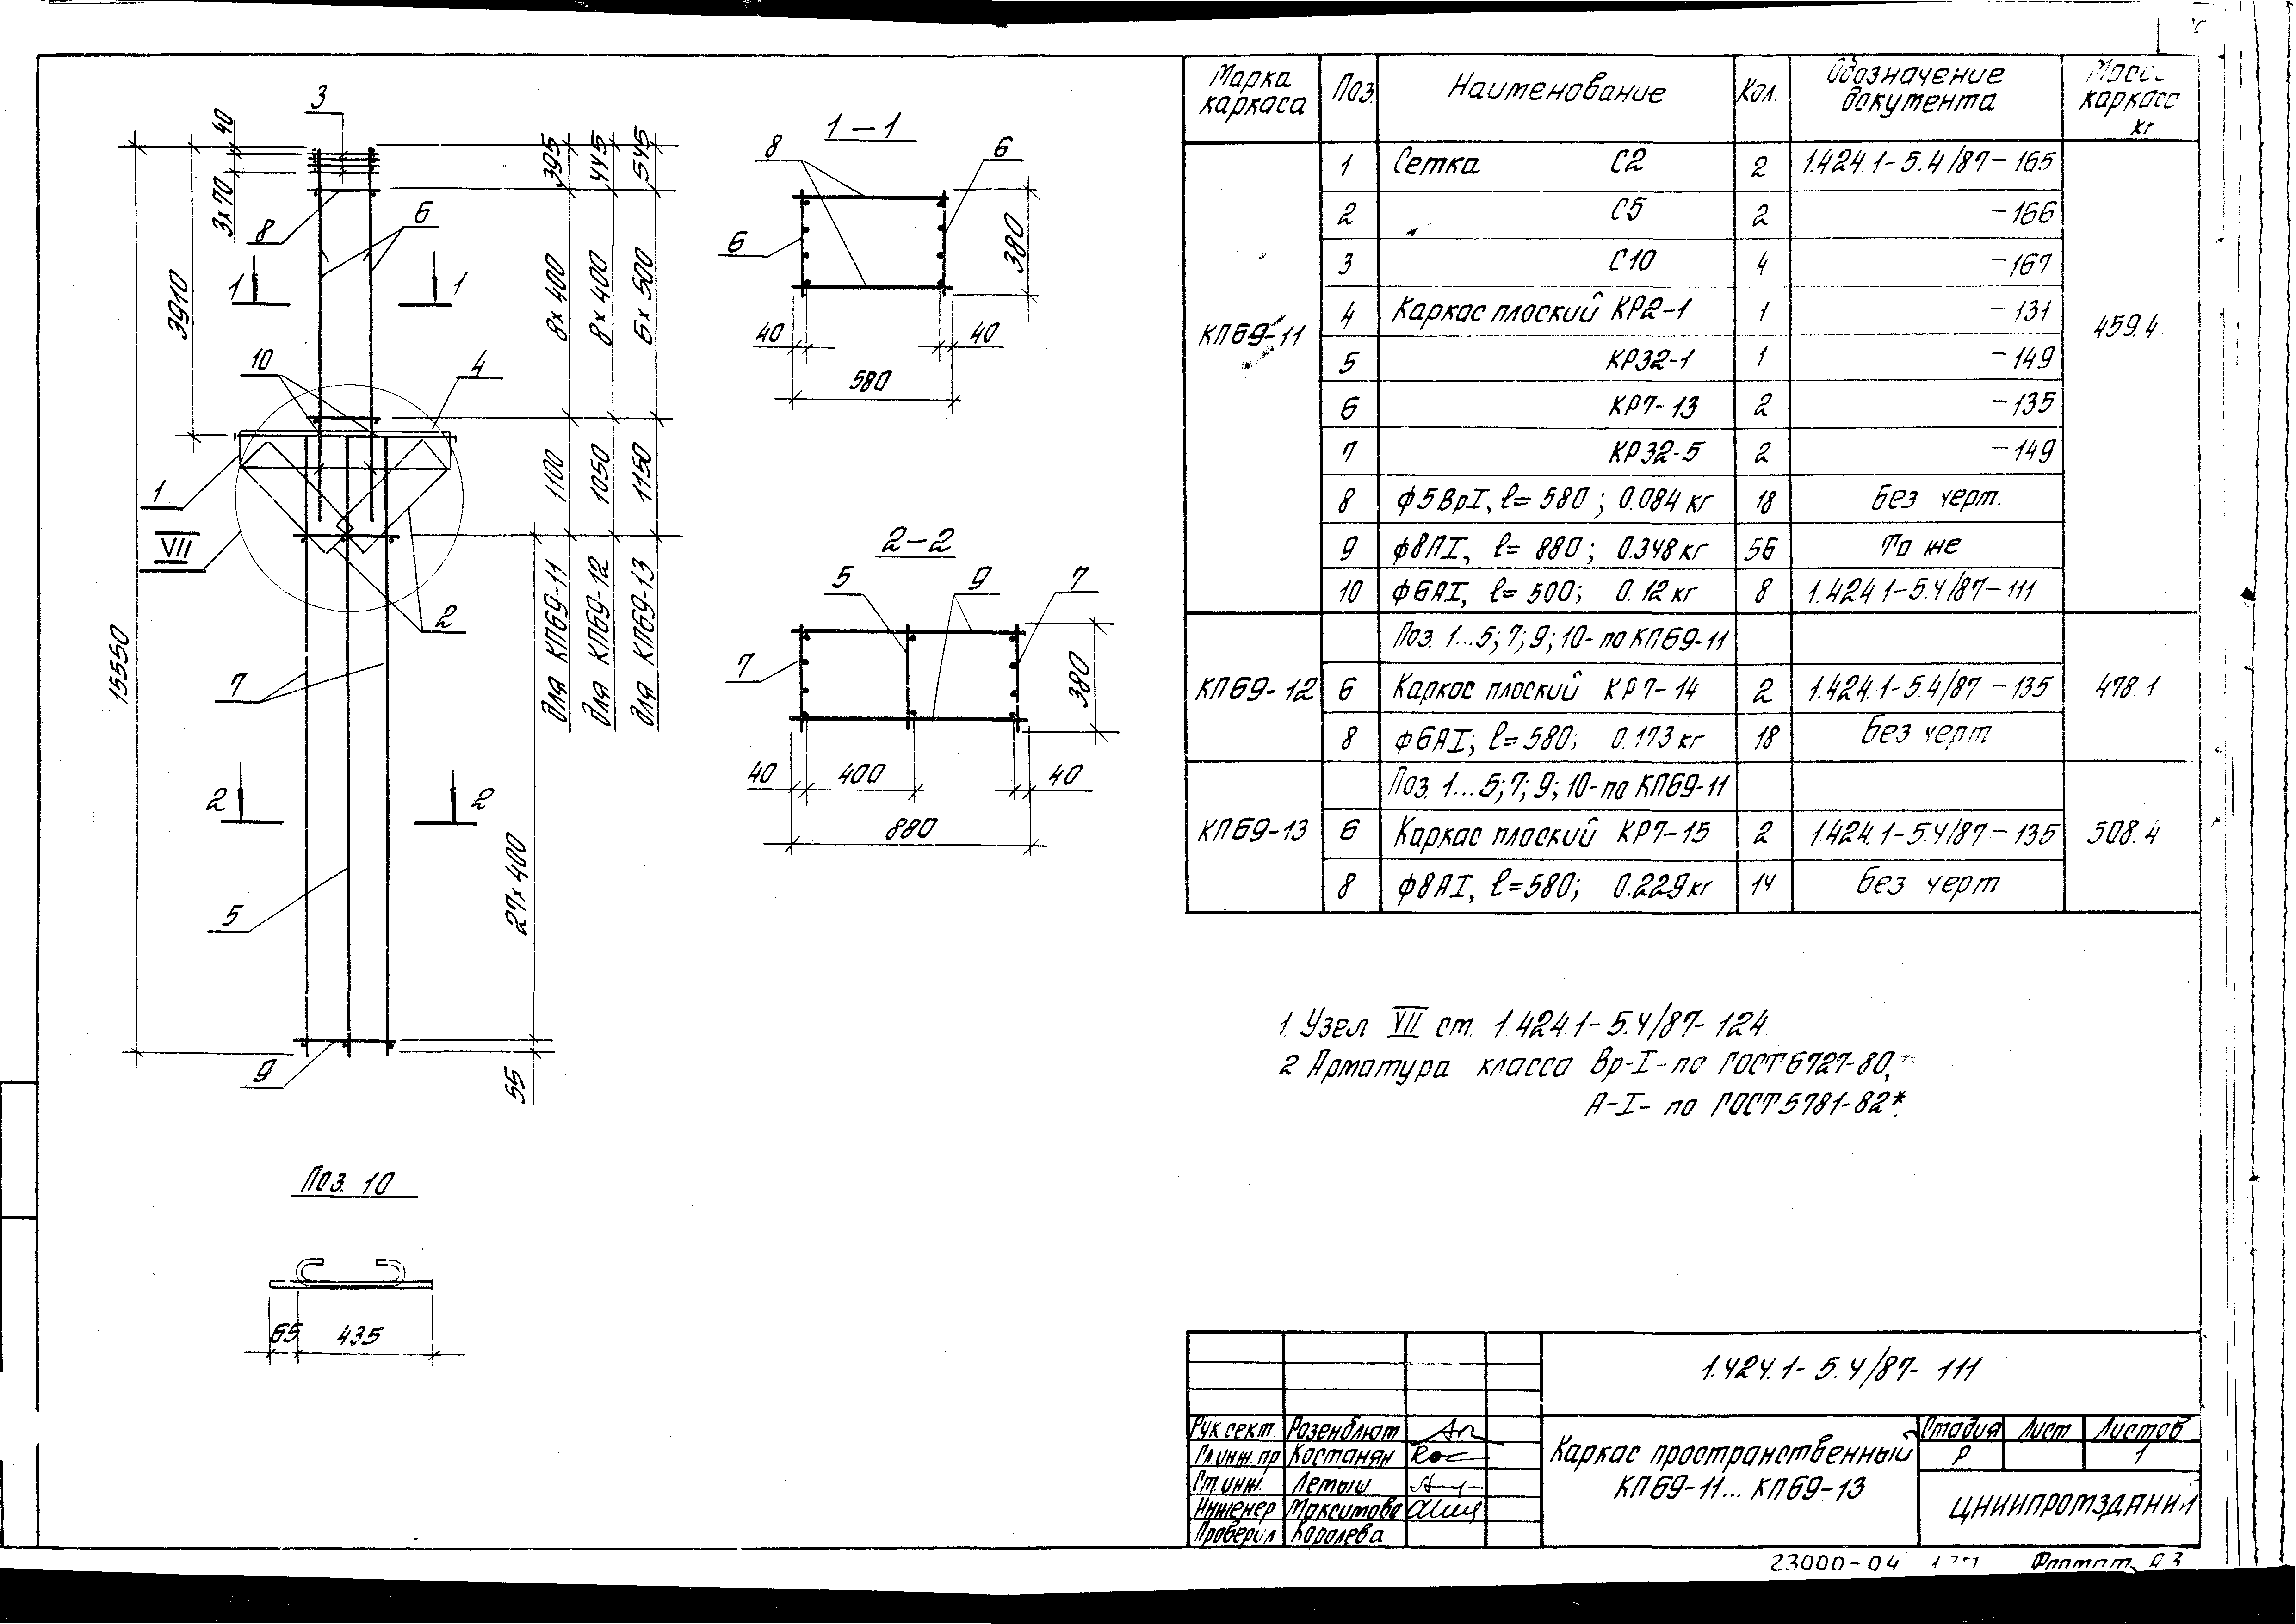 3
40
3х70
8
6
1
1
3910
10
4
1
VII
2
15550
7
2
2
5
9
395
445
545
8х400
8х400
6х500
1100
1050
1150
для КП69-11
для КП69-12
для КП69-13
27х400
55
1-1
8
6
6
380
40
40
580
2-2
5
9
7
7
380
40
400
40
880
Поз. 10
65
435
Марка каркаса | Поз. | Наименование | Кол. | Обозначение документа | каркаса кг
КП69-11 | 459.4
1 | Сетка С2 | 2 | 1.424.1-5.4/87-165
2 | С5 | 2 | -166
3 | С10 | 4 | -167
4 | Каркас плоский КР2-1 | 1 | -131
5 | КР32-1 | 1 | -149
6 | КР7-13 | 2 | -135
7 | КР32-5 | 2 | -149
8 | ф5ВрI, ℓ=580; 0.084кг | 18 | Без черт.
9 | ф8АI, ℓ=880; 0.348кг | 56 | То же
10 | ф6АI, ℓ=500; 0.12кг | 8 | 1.424.1-5.4/87-111
Поз. 1...5; 7; 9; 10-по КП69-11
КП69-12 | 6 | Каркас плоский КР7-14 | 2 | 1.424.1-5.4/87-135 | 478.1
8 | ф6АI; ℓ=580; 0.173кг | 18 | Без черт
Поз. 1...5; 7; 9; 10-по КП69-11
КП69-13 | 6 | Каркас плоский КР7-15 | 2 | 1.424.1-5.4/87-135 | 508.4
8 | ф8АI, ℓ=580; 0.229кг | 14 | Без черт
1. Узел VII ст. 1.424.1-5.4/87-124.
2 Арматура класса Вр-I-по ГОСТ 6727-80,
А-I-по ГОСТ 5781-82*.
1.424.1-5.4/87-111
Рук.сект. Розенблют
Гл.инж.пр Костанян
Ст.инж. Летыш
Инженер Максимова
Проверил Королева
Каркас пространственный
КП69-11...КП69-13
Стадия Лист Листов
Р 1
ЦНИИПРОМЗДАНИЙ
23000-04
Формат А3